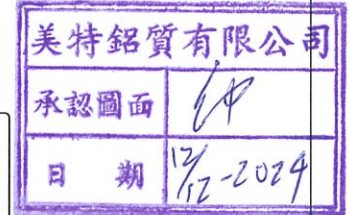 美特鋁質有限公司
承認圖面
日期 12/12-2024